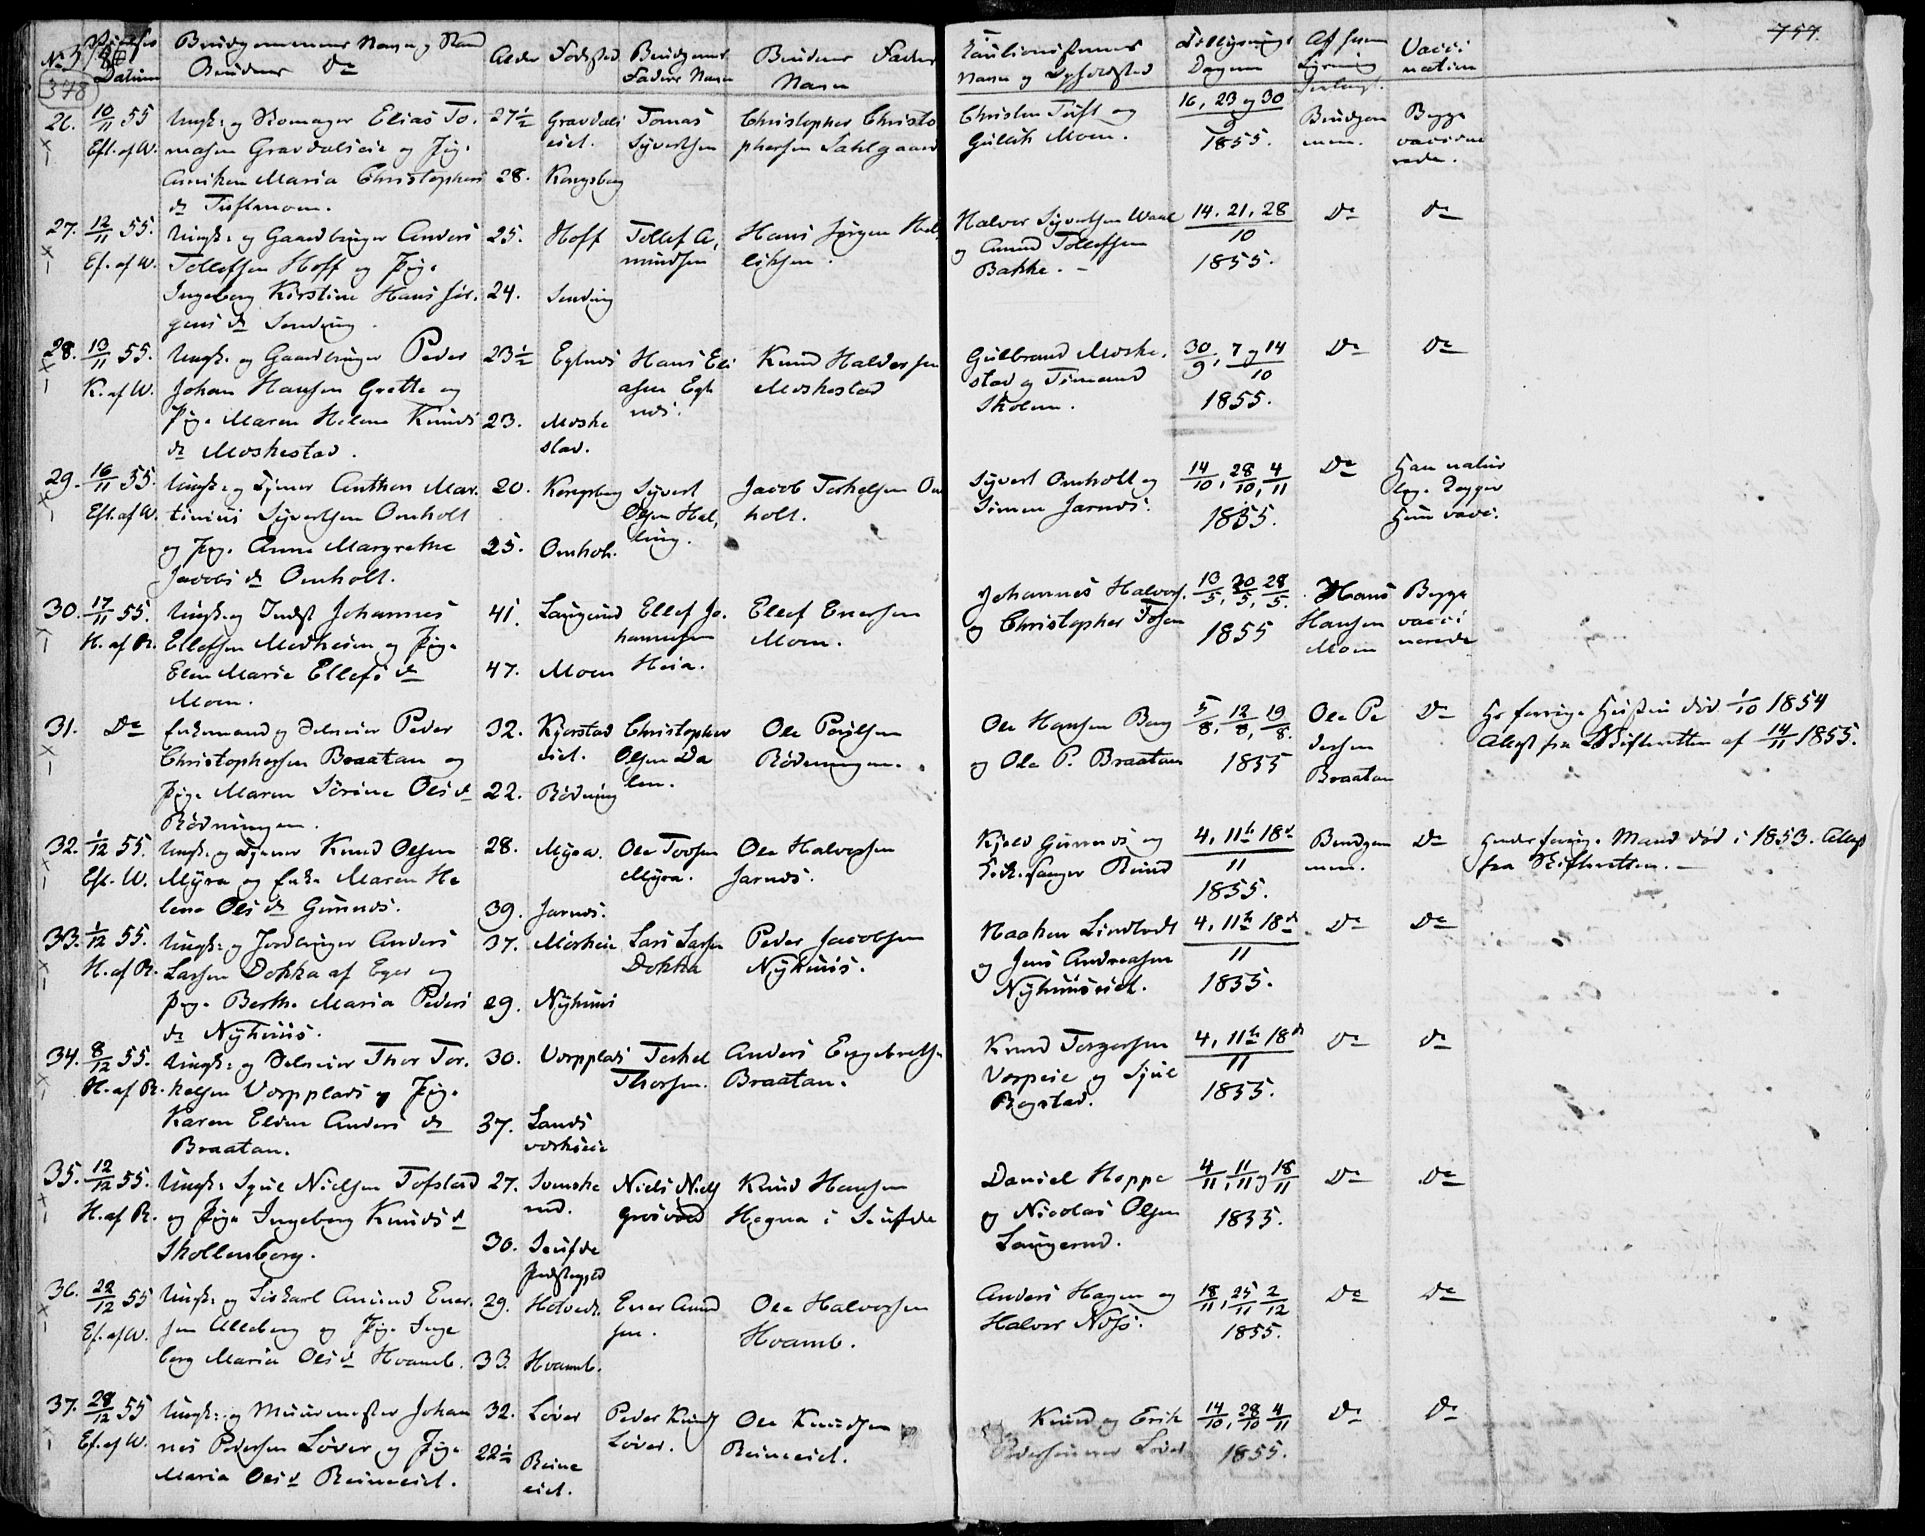 No
Datum
Brudgommens Navn og Stand
Brudens Do
Alder
Fødested
Brudgoms
Faders Navn
Brudens Fader
Navn
Cautionisternes
Navn og Opholdsted
Tillysnings
Dagene
Af hvem
Lysning
forlangt.
Vacci
nation
757.
378
26. 10/11 55
Eft. af W.
Ungk: og Skomager Elias To-
masen Gravdalseie og Pig.
Anniken Maria Christophers
dr Tuftmoen.
27½
28.
Gravdals
eiet.
Kongsberg
Tomas
Syvertsen
Christopher Christo
phersen Sahlgaard
Christen Tuft og
Gullik Moen.
16, 23 og 30
9
1855.
Brudgom
men.
Begge
vaccine
rede.
27. 12/11 55.
Ef. af W.
Ungk: og Gaardbruger Anders
Tollefsen Hoff og Pig.
Ingeborg Kirstine Hans Jør-
gens dr Sending.
25.
24.
Hoff
Sending
Tollef A,
mundsen
Hans Jørgen
Halvor Syvertsen
og Amund Tollefsen
Bakke. -
14. 21, 28
10
1855.
Do
Do
28. 13/11 55.
K. af W.
Ungk. og Gaardbruger Peder
Johan Hansen Grette og
Pig. Maren Helene Knuds
dr Moskestad.
23½
23.
Eglnes
Moske
stad.
Hans Eli
asen Egl
nes.
Knud Haldorsen
Moskestad
Gulbrand Moske,
stad og Simend
Skolem.
30/9, 7 og 14/10
1855.
Do
Do
29. 16/11 55.
Eft. af W.
Ungk: og Tjener Anthon Mar-
tinius Syvertsen Omholt
og Pig. Anne Margrethe
Jacobs dr Omholt.
20.
25.
Kongsberg
Omholt.
Syvert
Olsen Hal,
ling.
Jacob Terkelsen Om
holt.
Syvert Omholt og
Simen Jarnes.
14/10, 28/10, 4/11
1855.
Do
Han natur
lige Kopper
Hun vacc.
30. 17/11 55.
H. af R.
Ungk. og Inderst Johannes
Ellefsen Medheien og Pig.
Elen Marie Ellefs dr
Moen.
41.
47.
Laugerud
Moen
Ellef Jo.
hannesen
Heia.
Ellef Enersen
Moen.
Johannes Halvors.
og Christopher Tosen
13/5, 20/5, 28/5.
1855
Hans
Hansen
Moen
Begge
vacci
nerede
31. Do
Enkemand og Selveier Peder
Christophersen Braatan og
Pig. Maren Sørine Ols dr
Rødningen.
32.
22.
Kjørstad
eiet.
Rødning
Christopher
Olsen Da
len.
Ole Poulsen
Rødningen.
Ole Hansen Berg
og Ole P. Braatan
5/8, 12/8, 19/8.
1855
Ole Pe
dersen
Braatan
Do
Hs forrige Hustru død 1/10 1854
Attest fra Skifteretten af 14/11 1855.
32. 1/12 55.
Eft. W.
Ungk. og Tjener Knud Olsen
Myra og Enke Maren He
lene Ols dr Gunnes.
28.
39.
Myra.
Jarnes.
Ole Tovsen
Myra.
Ole Halvorsen
Jarnes.
Kjeld Gunnes og
Kirkesanger Ruud
4, 11te 18de
11
1855.
Brudgom
men.
Do
Hendes forrige Mand død i 1853. Attest
fra Skifteretten. -
33. 1/12 55.
H. af R.
Ungk: og Jordbruger Anders
Larsen Dokka af Eger og
Pig. Berthe Maria Peders
dr Nyhuus.
37.
29.
Mørkeie
Nyhuus
Lars Larsen
Dokka
Peder Jacobsen
Nyhuus.
Haaken Lindtvedt
og Jens Andreasen
Nyhuuseiet.
4, 11te 18de
11
1855.
Do
Do
34. 8/12 55.
H. af R.
Ungk: og Selveier Thor Ter-
kelsen Vorpplads og Pig.
Karen Eldine Anders dr
Braatan.
30.
37.
Vorpplads
Lands
værkseie
Terkel
Thorsen.
Anders Engebretsen
Braatan.
Knud Torgersen
Vorpeie og Sjul
Bogstad.
4, 11te 18de
11
1855.
Do
Do
35. 12/12 55.
H. af R.
Ungk. Sjul Nielsen Tofstad
og Pige Ingeborg Knuds dr
Skollenborg.
27.
30.
Svenske
rud.
Saufde
Præstegjeld
Niels Niels
Grosvold
Knud Hansen
Hogna i Saufde
Daniel Hoppe
og Nicolai Olsen
Laugerud.
4/11, 11/11 og 18/11
1855.
Do
Do
36. 22/12 55
Ef. af W.
Ungk. og Amund Ener-
sen Alleberg og Pig. Inge
borg Maria Ols dr Hvamb.
29.
33.
Holvedt.
Hvamb.
Ener Amund
sen.
Ole Halvorsen
Hvamb.
Anders Hagen og
Halvor
18/11, 25/11 2/12
1855.
Do
Do
37. 28/12 55
Ef. af W.
Ungk: og Muurmester Johan
nes Pedersen Løver og Pig.
Maria Ols dr Reineeiet.
32.
22½
Løver
Reine
eiet.
Peder Knuds
Løver.
Ole Knudsen
Reineeiet.
Knud og Erik
Pedersønner Løver
14/10, 28/10 4/11
1855.
Do
Do